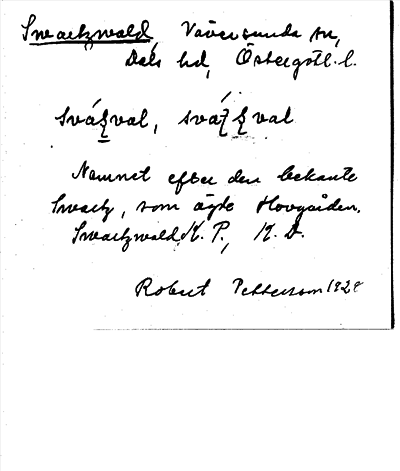 Swartzwald, Väversunda sn,
Dals hd, Östergötl. l.
sváʂval, sváʂval
Namnet efter den bekante
Swartz, som ägde Hovgården.
Swartzwald K. P., K. D.
Robert Pettersson 1928